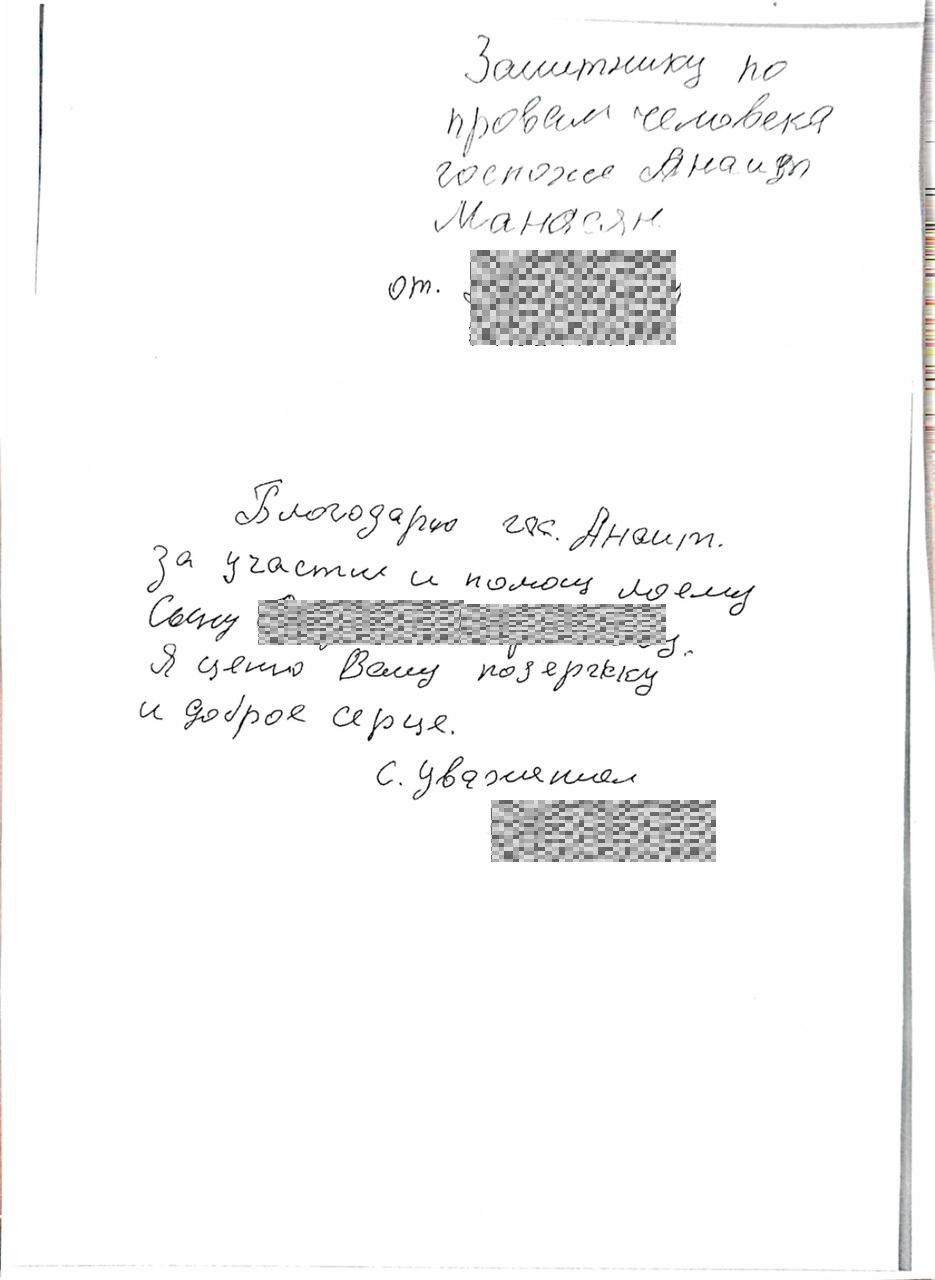 Защитнику по
провам человека
госпоже Анаиды
Манасян
от.
Благодарю гос. Анаит.
за участии и помощ моему
Сыну
Я ценю Вашу поддержку
и доброе серце.
С. Уважением